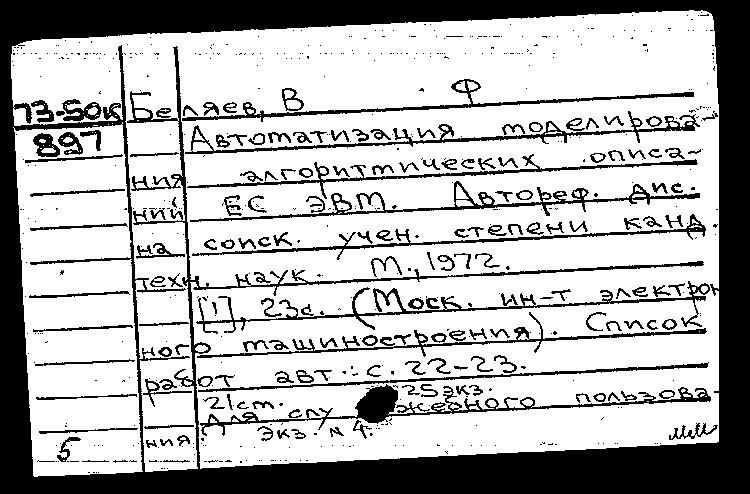 73-50к Беляев, В Ф
897 Автоматизация моделирова-
ния алгоритмических описа-
ний ЕС ЭВМ. Автореф. дис.
на соиск. учен. степени канд.
техн. наук. М., 1972.
[1], 23с. (Моск. ин-т электрон
ного машиностроения). Список
работ авт.: с. 22-23.
21ст. 25экз.
Для служебного пользова-
ния. Экз. N 4.
5